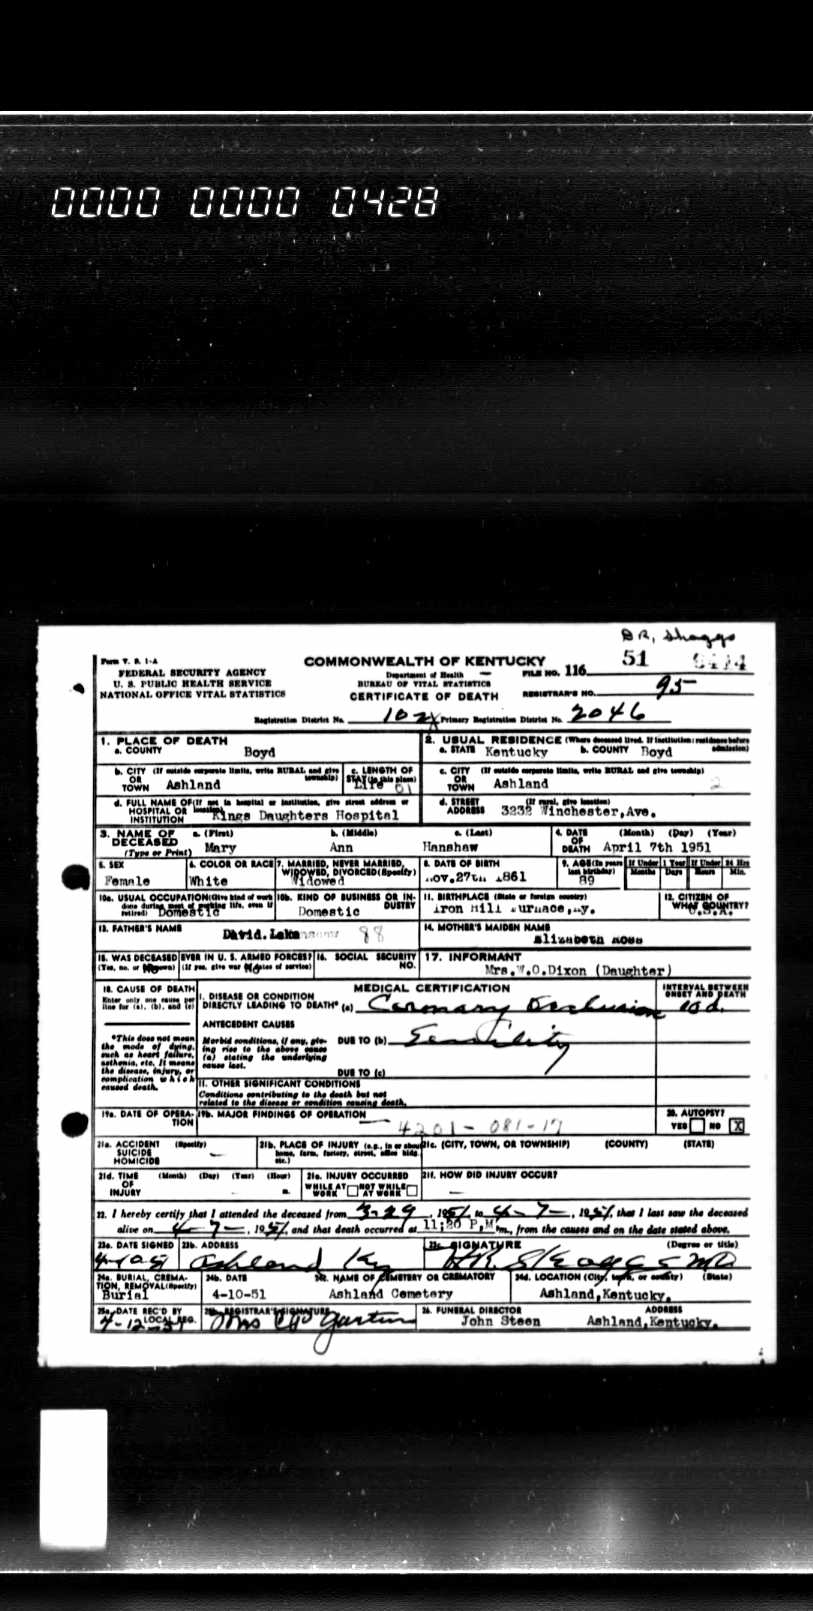 0000 0000 0428
DR, Skaggs
Form V. S. 1-A
FEDERAL SECURITY AGENCY
U. S. PUBLIC HEALTH SERVICE
NATIONAL OFFICE VITAL STATISTICS
COMMONWEALTH OF KENTUCKY
Department of Health
BUREAU OF VITAL STATISTICS
CERTIFICATE OF DEATH
51
FILE NO. 116
REGISTRAR'S NO. 95
Registration District No. 102 Primary Registration District No. 2046
1. PLACE OF DEATH
a. COUNTY Boyd
2. USUAL RESIDENCE (Where deceased lived. If institution: residence before admission)
a. STATE Kentucky b. COUNTY Boyd
b. CITY (If outside corporate limits, write RURAL and give township)
OR TOWN Ashland
c. LENGTH OF STAY (in this place) Life
c. CITY (If outside corporate limits, write RURAL and give township)
OR TOWN Ashland 2
d. FULL NAME OF (If not in hospital or institution, give street address or location)
HOSPITAL OR INSTITUTION Kings Daughters Hospital
d. STREET ADDRESS (If rural, give location)
3232 Winchester,Ave.
3. NAME OF DECEASED (Type or Print)
a. (First) Mary b. (Middle) Ann c. (Last) Hanshaw
4. DATE OF DEATH (Month) (Day) (Year) April 7th 1951
5. SEX Female
6. COLOR OR RACE White
7. MARRIED, NEVER MARRIED, WIDOWED, DIVORCED (Specify) Widowed
8. DATE OF BIRTH Nov.27th 1861
9. AGE (In years last birthday) 89
If Under 1 Year Months Days
If Under 24 Hrs Hours Min.
10a. USUAL OCCUPATION (Give kind of work done during most of working life, even if retired) Domestic
10b. KIND OF BUSINESS OR INDUSTRY Domestic
11. BIRTHPLACE (State or foreign country) Iron Hill Furnace,Ky.
12. CITIZEN OF WHAT COUNTRY? U.S.A.
13. FATHER'S NAME David. 88
14. MOTHER'S MAIDEN NAME Elizabeth Ross
15. WAS DECEASED EVER IN U. S. ARMED FORCES? (Yes, no, or unknown) (If yes, give war or dates of service) No
16. SOCIAL SECURITY NO.
17. INFORMANT Mrs.W.O.Dixon (Daughter)
18. CAUSE OF DEATH
Enter only one cause per line for (a), (b), and (c)
MEDICAL CERTIFICATION
INTERVAL BETWEEN ONSET AND DEATH
I. DISEASE OR CONDITION DIRECTLY LEADING TO DEATH* (a) Coronary Occlusion 10 d.
*This does not mean the mode of dying, such as heart failure, asthenia, etc. It means the disease, injury, or complication which caused death.
ANTECEDENT CAUSES
Morbid conditions, if any, giving rise to the above cause (a) stating the underlying cause last.
DUE TO (b) Senility
DUE TO (c)
II. OTHER SIGNIFICANT CONDITIONS
Conditions contributing to the death but not related to the disease or condition causing death.
19a. DATE OF OPERATION
19b. MAJOR FINDINGS OF OPERATION
4201 - 081-17
20. AUTOPSY? YES NO X
21a. ACCIDENT SUICIDE HOMICIDE (Specify)
21b. PLACE OF INJURY (e.g., in or about home, farm, factory, street, office bldg., etc.)
21c. (CITY, TOWN, OR TOWNSHIP) (COUNTY) (STATE)
21d. TIME OF INJURY (Month) (Day) (Year) (Hour) m.
21e. INJURY OCCURRED WHILE AT WORK NOT WHILE AT WORK
21f. HOW DID INJURY OCCUR?
22. I hereby certify that I attended the deceased from 3-29, 1951 to 4-7-, 1951, that I last saw the deceased
alive on 4-7-, 1951, and that death occurred at 11;20 P.M m., from the causes and on the date stated above.
23a. DATE SIGNED
23b. ADDRESS Ashland Ky
23c. SIGNATURE (Degree or title) H.R. Skaggs MD
24a. BURIAL, CREMATION, REMOVAL (Specify) Burial
24b. DATE 4-10-51
24c. NAME OF CEMETERY OR CREMATORY Ashland Cemetery
24d. LOCATION (City, town, or county) (State) Ashland,Kentucky.
25a. DATE REC'D BY LOCAL REG. 4-12-51
25b. REGISTRAR'S SIGNATURE
26. FUNERAL DIRECTOR John Steen
ADDRESS Ashland,Kentucky.